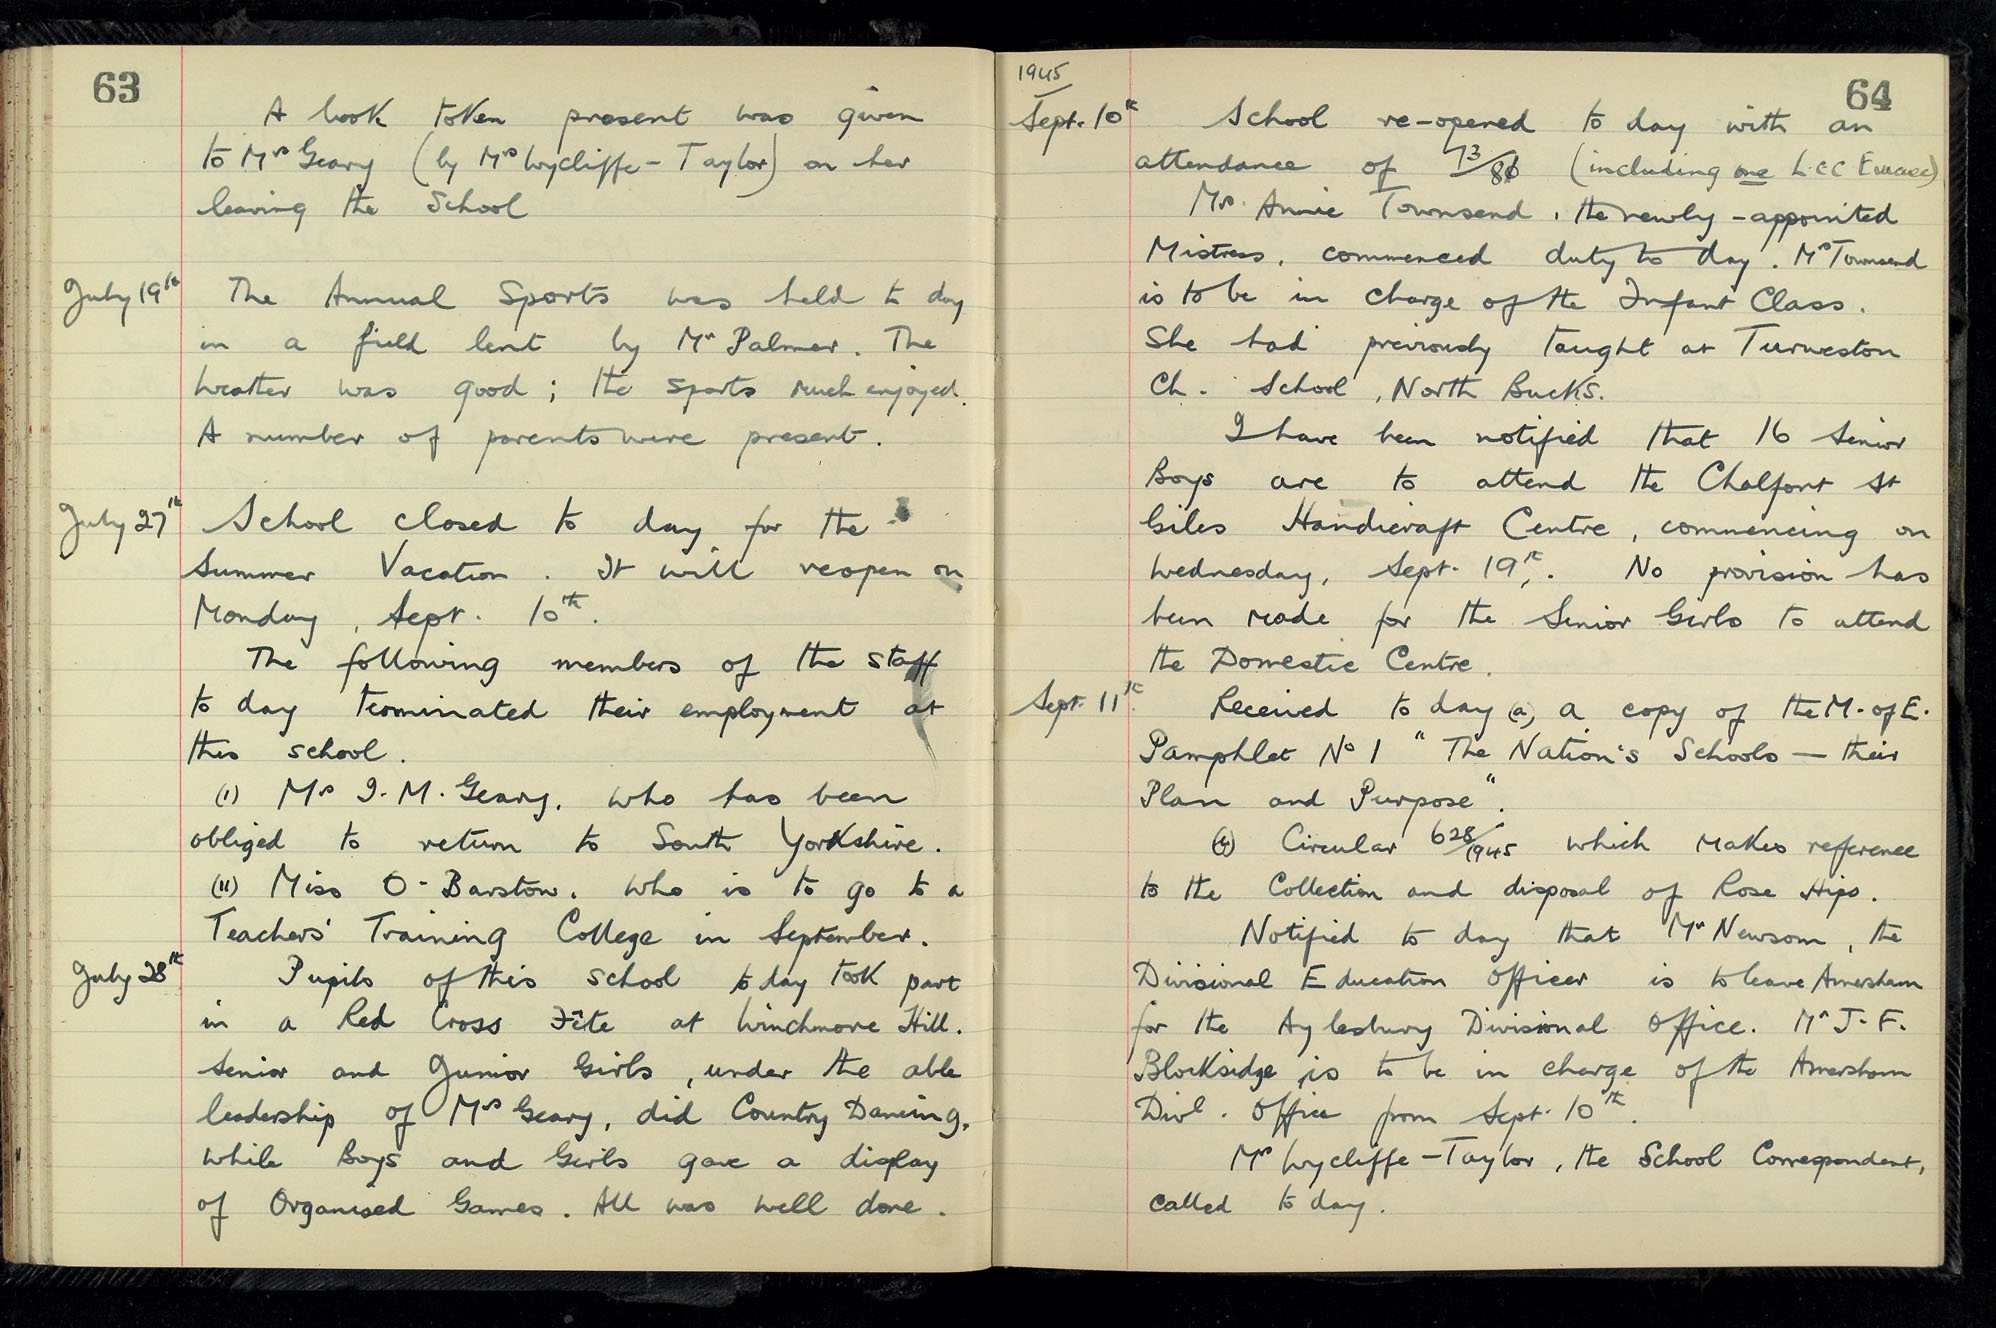 63
A book token present was given
to Mrs Geary (by Mrs Wycliffe-Taylor) on her
leaving the School
July 19th The Annual Sports was held to day
in a field lent by Mr Palmer. The
weather was good; the sports much enjoyed.
A number of parents were present.
July 27th School closed to day for the
Summer Vacation. It will reopen on
Monday, Sept. 10th.
The following members of the staff
to day terminated their employment at
this school.
(i) Mrs I. M. Geary, who has been
obliged to return to South Yorkshire.
(ii) Miss O. Barstow, who is to go to a
Teachers' Training College in September.
July 28th Pupils of this school to day took part
in a Red Cross Fête at Winchmore Hill.
Senior and Junior Girls, under the able
leadership of Mrs Geary, did Country Dancing,
while Boys and Girls gave a display
of Organised Games. All was well done.
64
1945
Sept. 10th School re-opened to day with an
attendance of 73/86 (including one L.C.C Evacee)
Mrs. Annie Townsend, the newly-appointed
Mistress, commenced duty to day. Mrs Townsend
is to be in charge of the Infant Class.
She had previously taught at Turweston
Ch. School, North Bucks.
I have been notified that 16 Senior
Boys are to attend the Chalfont St
Giles Handicraft Centre, commencing on
Wednesday, Sept. 19th. No provision has
been made for the Senior Girls to attend
the Domestic Centre.
Sept. 11th. Received to day (a) a copy of the M. of E.
Pamphlet No 1 "The Nation's Schools — their
Plan and Purpose".
Circular 628/1945 which makes refference
to the Collection and disposal of Rose Hips.
Notified to day that Mr Newsom, the
Divisional Education Officer is to leave Amersham
for the Aylesbury Divisional Office. Mr J. F.
Blocksidge is to be in charge of the Amersham
Divl. Office from Sept. 10th.
Mrs Wycliffe-Taylor, the School Correspondent,
called to day.